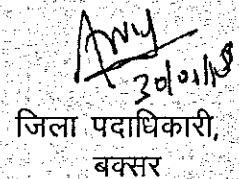 30/01/18
जिला पदाधिकारी,
बक्सर